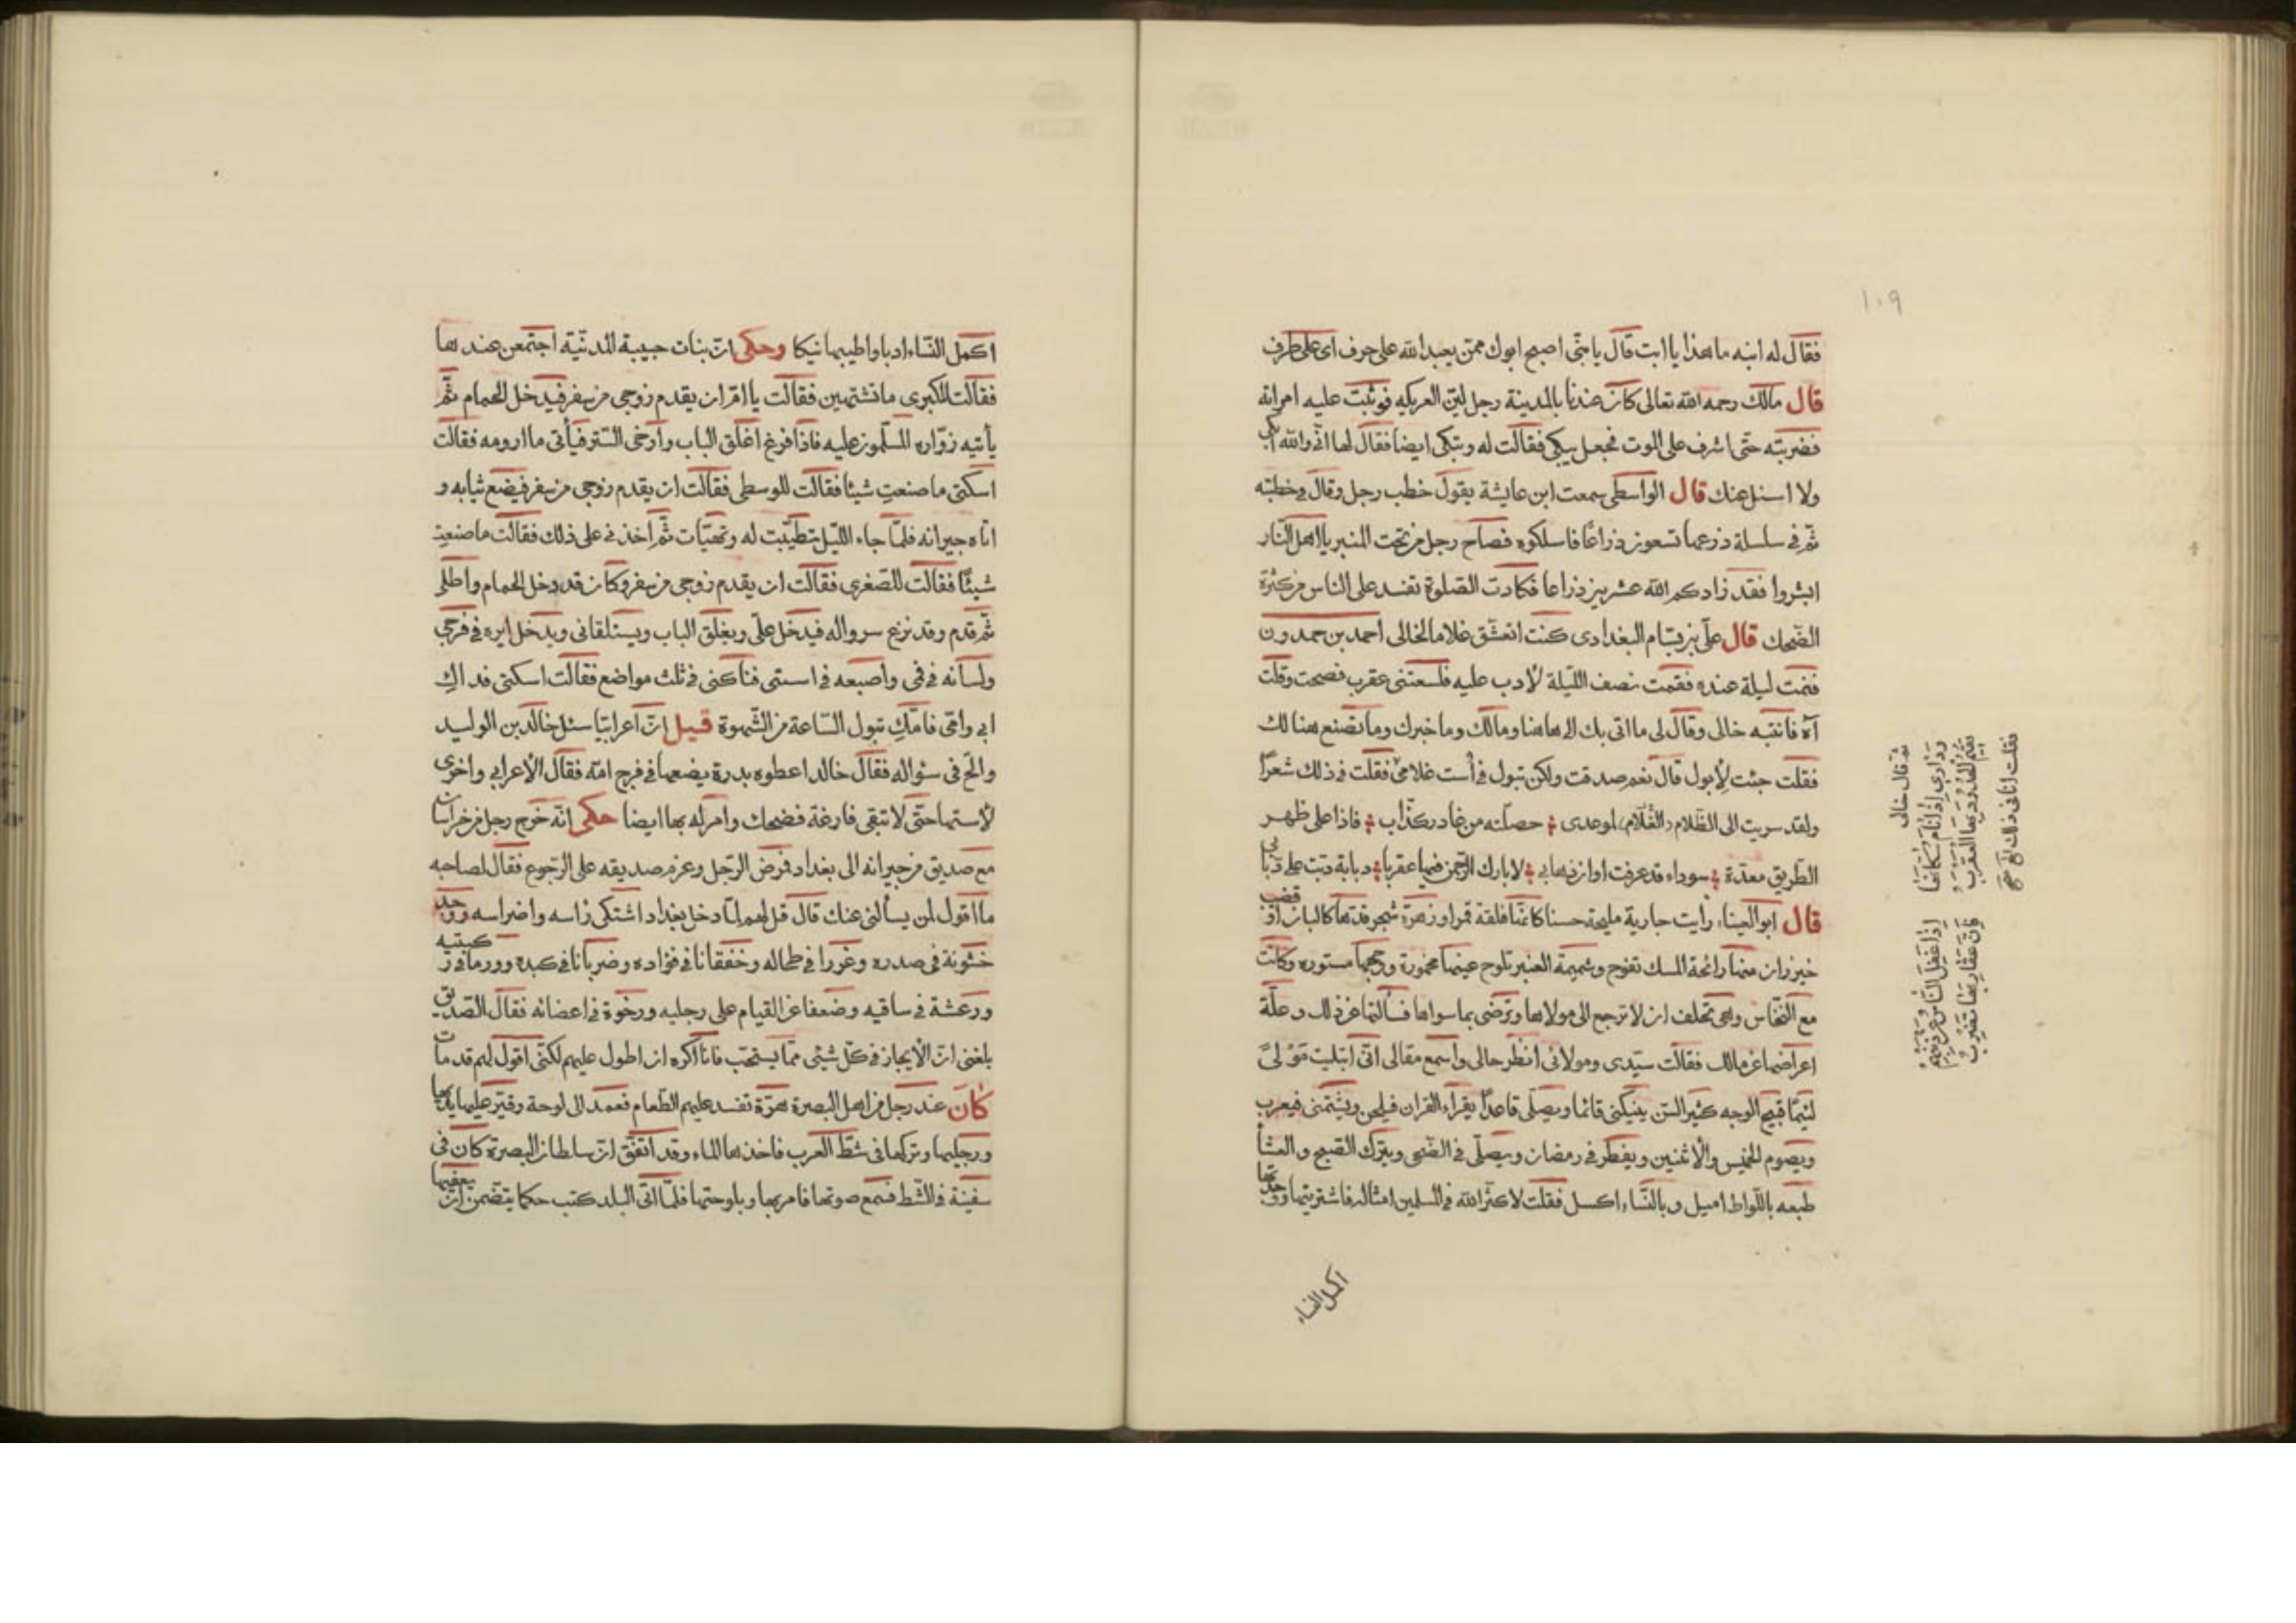 ١٠٩
فقال له ابنه ما هذا يا ابت قال يا بنى اصبح ابوك ممن يعبد الله على حرف اى على طرف
قال مالك رحمه الله تعالى كان عندنا بالمدينة رجل ليّن العريكه فوثبت عليه امراته
فضربته حتّى اشرف على الموت فجعل يبكى فقالت له وتبكى ايضا فقال لها انّى والله ابكى
ولا اسئل عنك قال الواسطى سمعت ابن عايشة يقول خطب رجل وقال فى خطبته
ثمّ فى سلسلة ذرعها تسعون ذراعًا فاسلكوه فصاح رجل من تحت المنبر يا اهل النّار
ابشروا فقد زادكم الله عشرين ذراعا فكادت الصّلوة تفسد على الناس من كثرة
الضّحك قال علىّ بن بسّام البغدادى كنت اتعشّق غلاما لخالى احمد بن حمدون
فنمت ليلة عنده فقمت نصف اللّيلة لأدب عليه فلسعتنى عقرب فصحت وقلت
آه فانتبه خالى وقال لى ما اتى بك الى هاهنا ومالك وما خبرك وما تصنع هنالك
فقلت جئت لأبول قال نعم صدقت ولكن تبول فى أست غلامى فقلت فى ذلك شعرًا
ولقد سريت الى الظّلام لموعدى حصلته من غادر كذّاب فاذا على ظهر
الطّريق معدّة سوداء قد عرفت اوان ذهابى لا بارك الرّحمن فيها عقربا دبابة دبت على دبّاب
قال ابو العيناء رأيت جارية مليحة حسنا كانّها فلقة قمر او زهرة شجر قدّها كالبان او قضيب
خيزران منها رائحة المسك تفوح وشميمة العنبر تلوح عينها مخمورة ووجهها مستوره وكانت
مع النخّاس وهى تحلف ان لا ترجع الى مولاها وترضى بما سواها فسألتها عن ذلك وعلّة
اعراضها عن مالك فقالت سيّدى ومولائى انظر حالى واسمع مقالى انّى ابتليت مولىً
لئيمًا قبيح الوجه كثير السّن ينيكنى قائما ويصلّى قاعدًا يقراء القران فيلحن ويشتمنى فيعرب
ويصوم الخميس والأثنين ويفطر فى رمضان ويصلّى فى الضّحى ويترك الصّبح والعشا
طبعه باللّواط اميل وبالنّساء اكسل فقلت لا كثّر الله فى المسلمين امثاله فاشتريتها ووجدتها
اكمل النساء
ثمّ قال خالى
ودارى اذا نام سكانها
تقيم الحدود بها العقرب
اذا غفل النّاس عن دينهم
فانّ عقاربها تضرب
اكمل النّساء ادبا واطيبها نيكا وحكى انّ بنات حبيبة المدنيّة اجتمعن عندها
فقالت للكبرى ما تشتهين فقالت يا امّ ان يقدم زوجى من سفر فيدخل الحمام ثمّ
يأتيه زوّاره المسلّمون عليه فاذا فرغ اغلق الباب وأرخى السّتر فيأتى ما ارومه فقالت
اسكتى ما صنعتِ شيئا فقالت للوسطى فقالت ان يقدم زوجى من سفر فيضع ثيابه و
اتاه جيرانه فلمّا جاء اللّيل تطيّبت له وتهيّات ثمّ اخذنى على ذلك فقالت ما صنعتِ
شيئًا فقالت للصّغرى فقالت ان يقدم زوجى من سفر وكان قد دخل الحمام واطلى
ثمّ قدم وقد نزع سرواله فيدخل علىّ ويغلق الباب ويستلقانى ويدخل ايره فى فرجى
ولسانه فى فمى واصبعه فى استى فناكنى فى ثلث مواضع فقالت اسكتى فداكِ
ابى وامّى فامّكِ تبول السّاعة من الشّهوة قيل انّ اعرابيّا سئل خالد بن الوليد
والحّ فى سئواله فقال خالد اعطوه بدرة يضعها فى فرج امّه فقال الأعرابى واخرى
لأستها حتّى لا تبقى فارغة فضحك وامر له بها ايضا حكى انّه خرج رجل من خراسان
مع صديق من جيرانه الى بغداد فمرض الرّجل وعزم صديقه على الرّجوع فقال لصاحبه
ما اقول لمن يسألنى عنك قال قل لهم لمّا دخل بغداد اشتكى راسه واضراسه ووجد
خشونة فى صدره وغررا فى طحاله وخفقانا فى فؤاده وضربانا فى كبده وورما فى ركبتيه
ورعشة فى ساقيه وضعفا عن القيام على رجليه ورخوة فى اعضائه فقال الصّديق
بلغنى انّ الأيجاز فى كلّ شيئى ممّا يستحبّ فانا اكره ان اطول عليهم لكنّى اقول لهم قد مات
كان عند رجل من اهل البصرة هرّة تفسد عليهم الطّعام فعمد الى لوحة وقيّر عليها يديها
ورجليها وتركها فى شطّ العرب فاخذها الماء وقد اتّفق انّ سلطان البصرة كان فى
سفينة فى الشّط فسمع صوتها فامر بها وبلوحتها فلمّا اتى البلد كتب حكما يتضّمن انّ